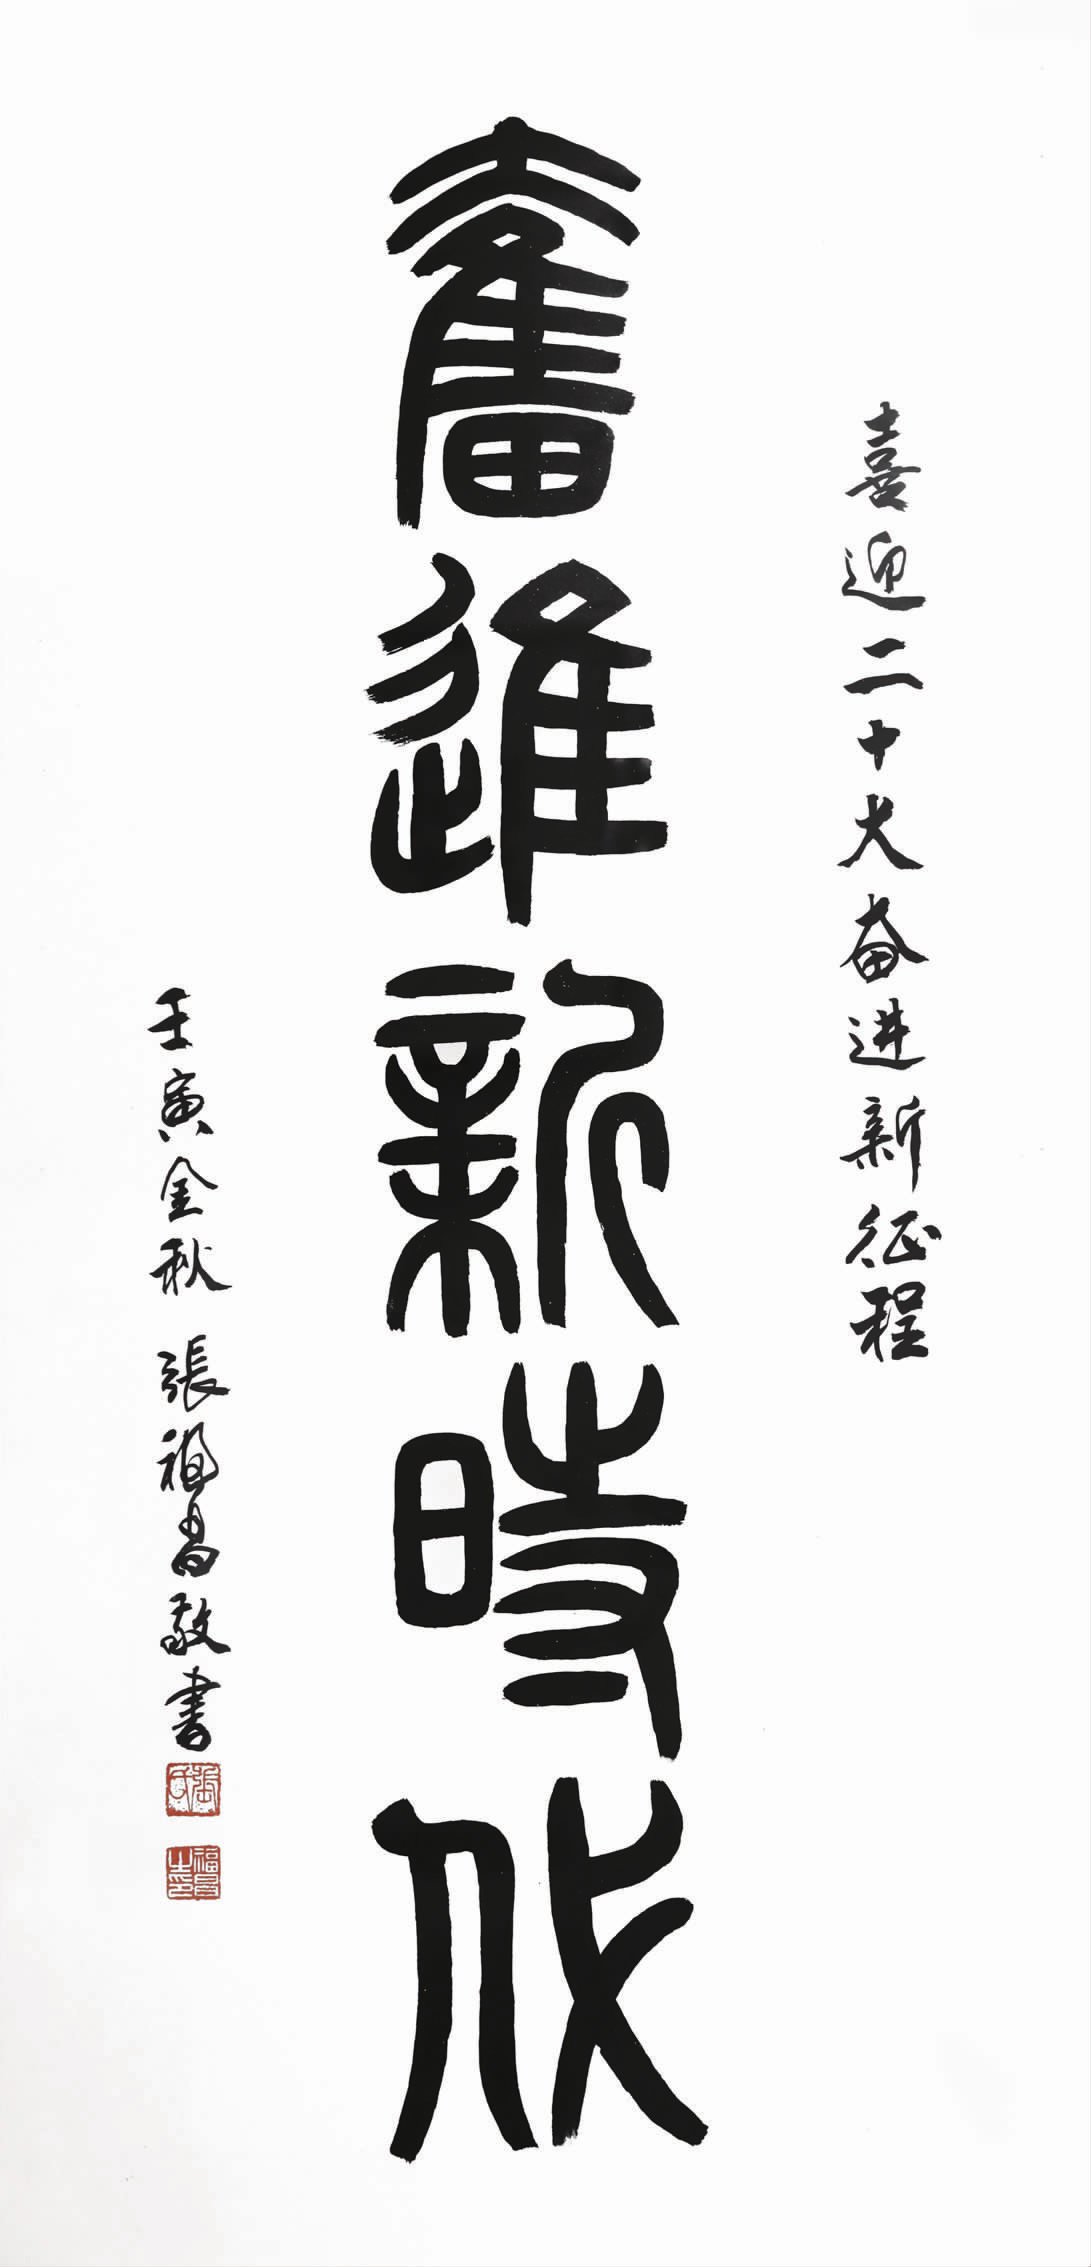 喜迎二十大奋进新征程
奮進新時代
壬寅金秋 張福昌敬书
福昌之印